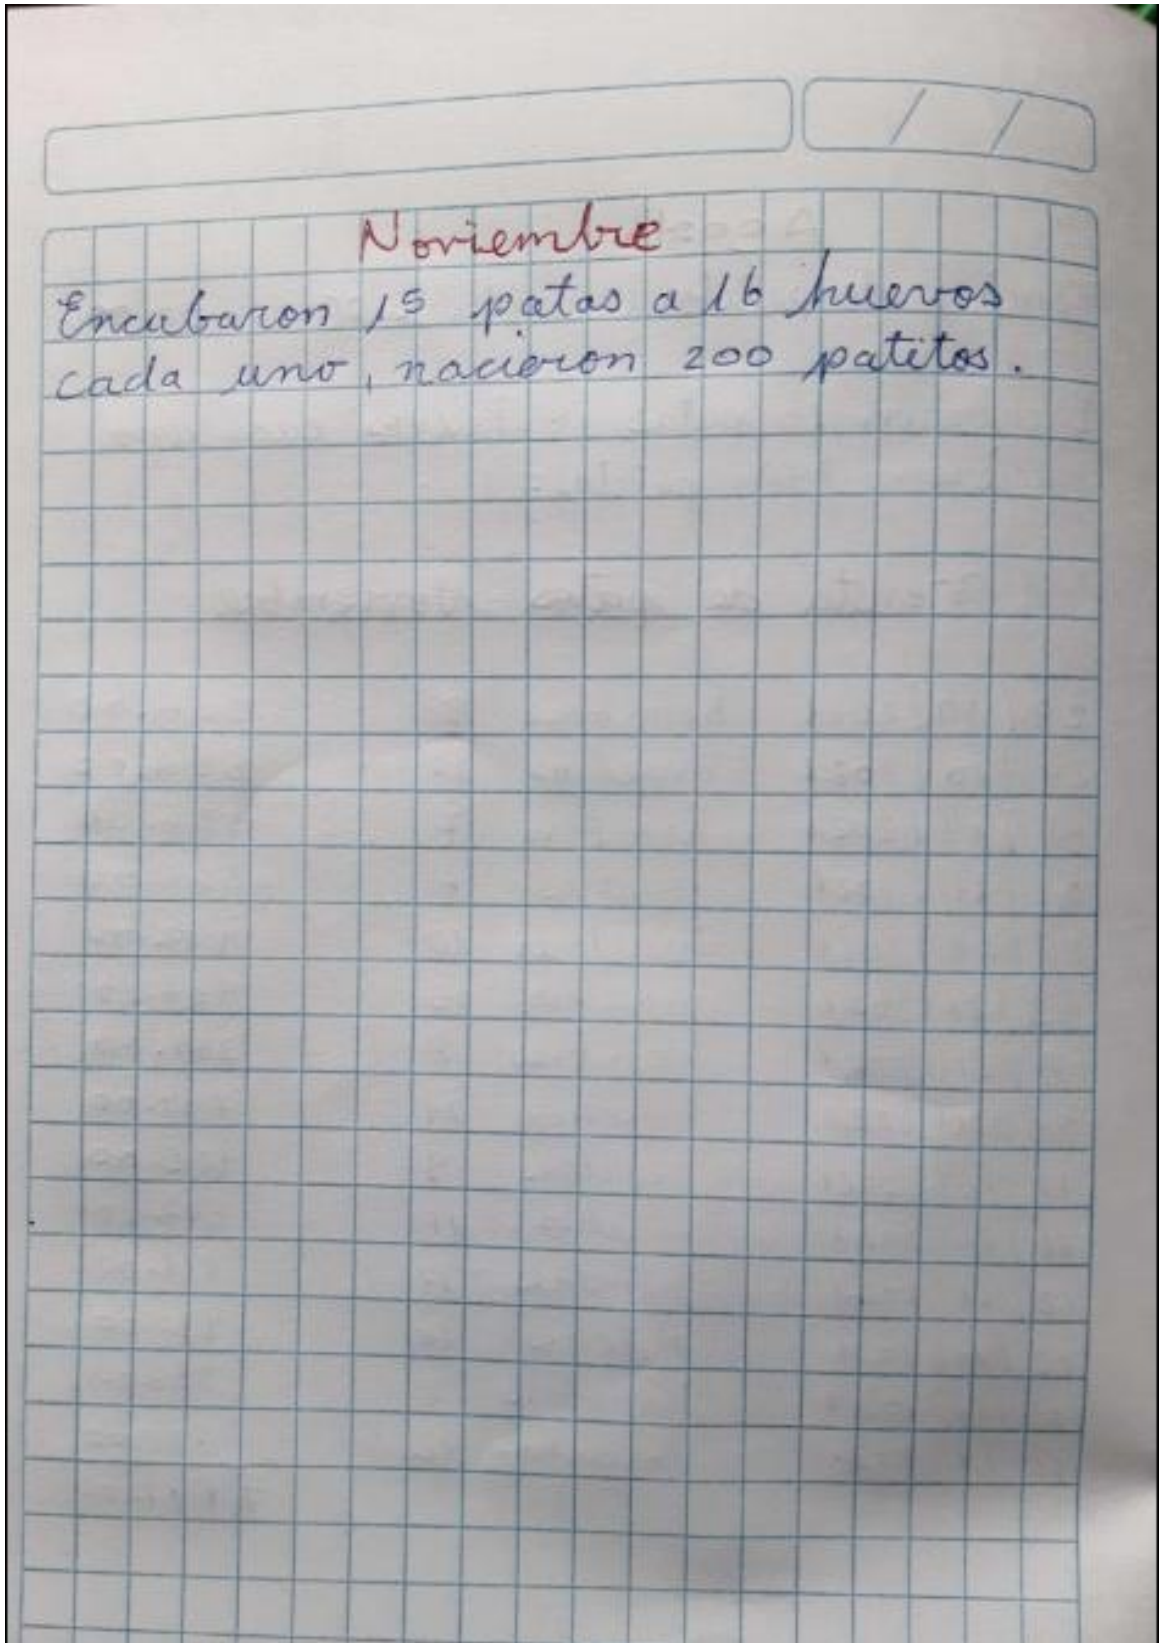 Noviembre
Encubaron 15 patas a 16 huevos
cada uno, nacieron 200 patitos.